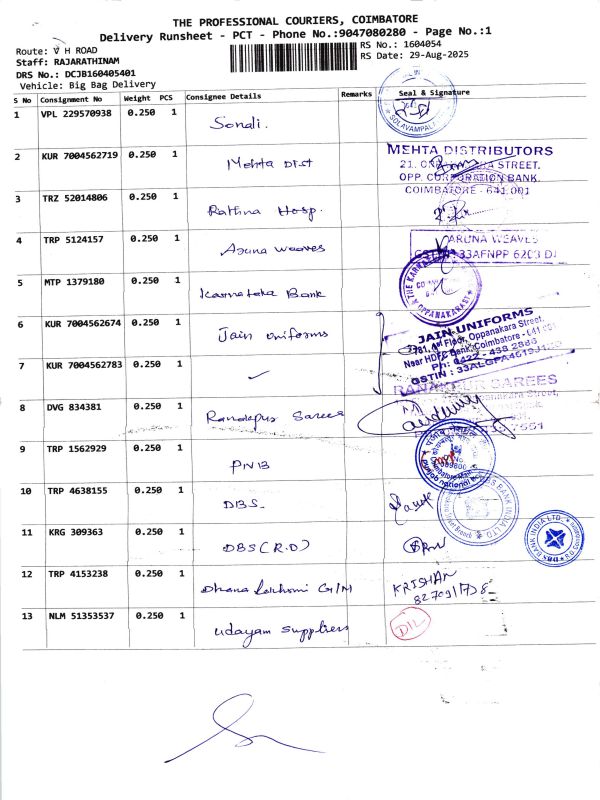 THE PROFESSIONAL COURIERS, COIMBATORE
Delivery Runsheet - PCT - Phone No.:9047080280 - Page No.:1
Route: V H ROAD
RS No.: 1604054
Staff: RAJARATHINAM
RS Date: 29-Aug-2025
DRS No.: DCJB160405401
Vehicle: Big Bag Delivery
S No Consignment No Weight PCS Consignee Details Remarks Seal & Signature
1 VPL 229570938 0.250 1 Sonali.
SOLAVAMPAL
2 KUR 7004562719 0.250 1 Mehta Dist
MEHTA DISTRIBUTORS
STREET,
OPP. CORPORATION BANK,
COIMBATORE - 641 001
3 TRZ 52014806 0.250 1 Rathna Hosp.
4 TRP 5124157 0.250 1 Aruna weaves
ARUNA WEAVES
GSTIN 33AFNPP 6203 D
5 MTP 1379180 0.250 1 Karnataka Bank
THE KARNATAKA
OPPANAKARA ST
6 KUR 7004562674 0.250 1 Jain uniforms
JAIN UNIFORMS
781, 1st Floor, Oppanakara Street,
Near HDFC Bank, Coimbatore - 641 001
Ph: 0422 - 438 2886
GSTIN : 33ALGPA4619J
7 KUR 7004562783 0.250 1 ✓
RANAKPUR SAREES
8 DVG 834381 0.250 1 Ranakpur Sarees
Street,
9 TRP 1562929 0.250 1 PNB
punjab national
10 TRP 4638155 0.250 1 DBS
DBS BANK INDIA LTD
11 KRG 309363 0.250 1 DBS (R.O)
DBS BANK INDIA LTD.
12 TRP 4153238 0.250 1 Dhana Lakshmi G/M
KRISHAN
13 NLM 51353537 0.250 1 Udayam Suppliers
D/L